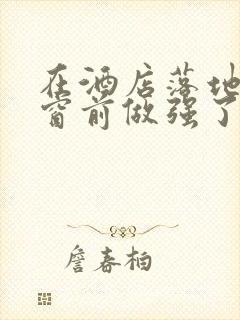 在酒店落地
窗前做强了
詹春柏